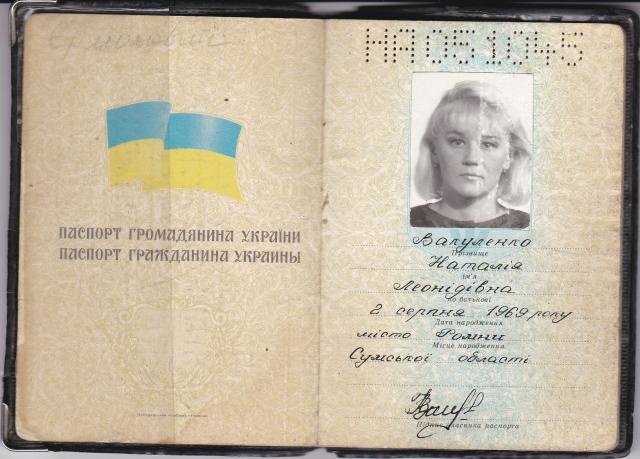 ПАСПОРТ ГРОМАДЯНИНА УКРАЇНИ
ПАСПОРТ ГРАЖДАНИНА УКРАИНЫ
НА051045
Вакуленко
Прізвище
Наталія
Ім'я
Леонідівна
По батькові
2 серпня 1969 року
Дата народження
місто Ромни
Місце народження
Сумської області
Підпис власника паспорта